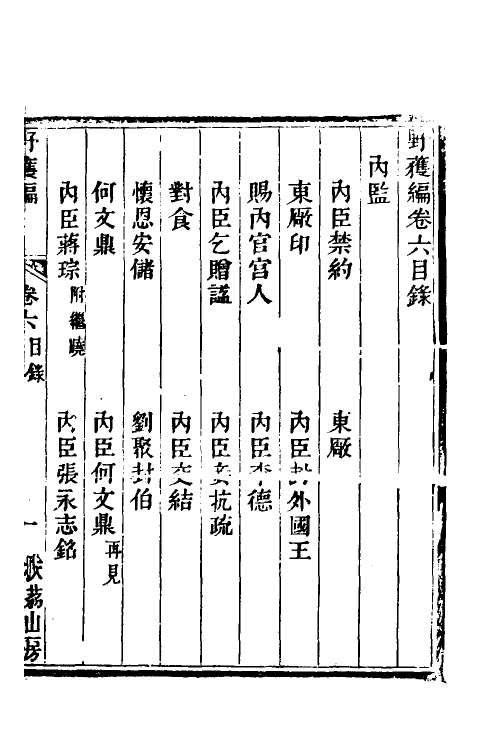 野獲編卷六目錄
內監
內臣禁約 東厰
東厰印 內臣封外國王
賜內官宮人 內臣李德
內臣乞贈謚 內臣妄抗疏
對食 內臣交結
懷恩安儲 劉聚封伯
何文鼎 內臣何文鼎再見
內臣蔣琮附繼曉 內臣張永志銘
野獲編 卷六目錄 一 扶荔山房